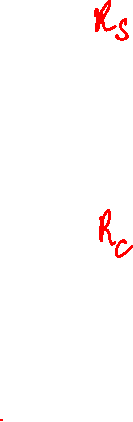 R_S
R_C